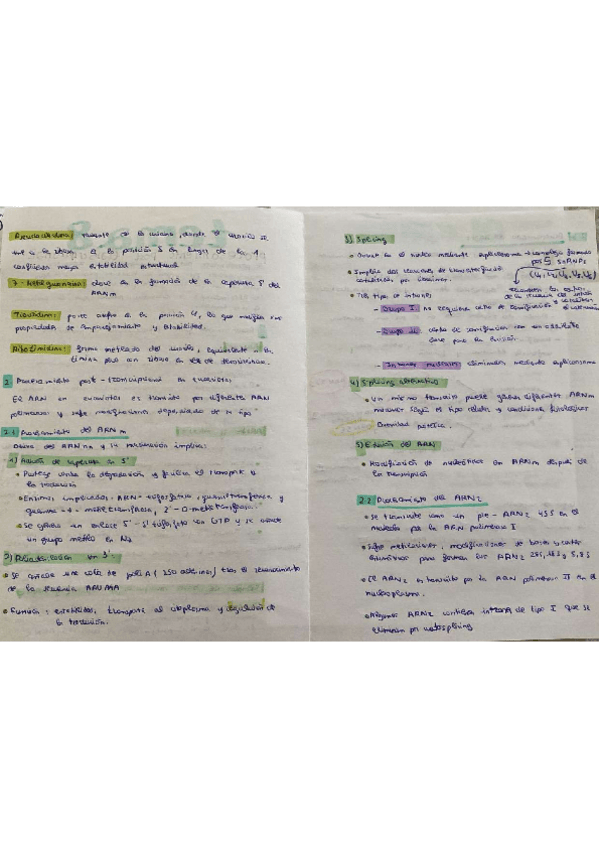 Pseudouridina: variante de la uridina, donde el
une a la ribosa en la posición 5 en lugar de la 1
confiriendo mayor estabilidad estructural
7-Metilguanosina: clave en la formación de la caperuza 5' del
ARNm
Tiouridina: posee azufre en la posición 4, lo que modifica sus
propiedades de emparejamiento y estabilidad.
Ribotimidina: forma metilada del uracilo, equivalente a la
timina pero con ribosa en vez de desoxirribosa.
2. Procesamiento post-transcripcional en eucariotas
El ARN en eucariotas es transcrito por diferentes ARN
polimerasas y sufre modificaciones dependiendo de su tipo
2.1 Procesamiento del ARNm
Deriva del ARNhn y su maduración implica:
1) Adición de caperuza en 5'
• Protege contra la degradación y facilita el transporte y
la traducción
• Enzimas implicadas: ARN-trifosfatasa, guaniltransferasa y
guanina-7-metiltransferasa, 2'-O-metiltransferasa
• Se genera un enlace 5'-5' trifosfato con GTP y se añade
un grupo metilo en N7
2) Poliadenilación en 3'
• Se añade una cola de poli A (250 adeninas) tras el reconocimiento
de la secuencia AAUAAA
• Función: estabilidad, transporte al citoplasma y regulación de
la traducción.
3) Splicing
• Ocurre en el núcleo mediante espliceosoma → complejo formado
por 5 snRNPs
(U1, U2, U4, U5, U6)
• Implica dos reacciones de transesterificación
• Tres tipos de intrones
- Grupo I: No requiere
- Grupo II:
clave para la
- Intrones nucleares: eliminados mediante espliceosoma
4) Splicing alternativo
• Un mismo transcrito puede generar diferentes ARNm
maduros según el tipo celular y condiciones fisiológicas
5) Edición del ARN
• Modificación de nucleótidos en ARNm después de
la transcripción
2.2 Procesamiento del ARNr
• Se transcribe como un pre-ARNr 45S en el
nucleolo por la ARN polimerasa I
• Sufre metilaciones, modificaciones de bases y cortes
para formar los ARNr 28S, 18S y 5,8S
• El ARNr es transcrito por la ARN polimerasa III en el
nucleoplasma.
• Algunos ARNr contienen intrones de tipo I que se
eliminan por autosplicing